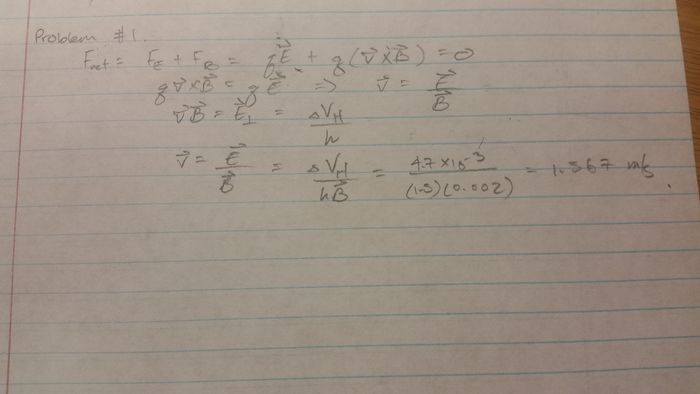 Problem #1.
Fnet = FE + FB = qE⃗ + q(v⃗ × B⃗) = 0
q v⃗ × B⃗ = q E⃗ => v⃗ = E⃗/B⃗
v⃗B⃗ = E⃗⊥ = ΔVH/h
v⃗ = E⃗/B⃗ = ΔVH/hB⃗ = 4.7 × 10^-3/(1.5)(0.002) = 1.567 m/s